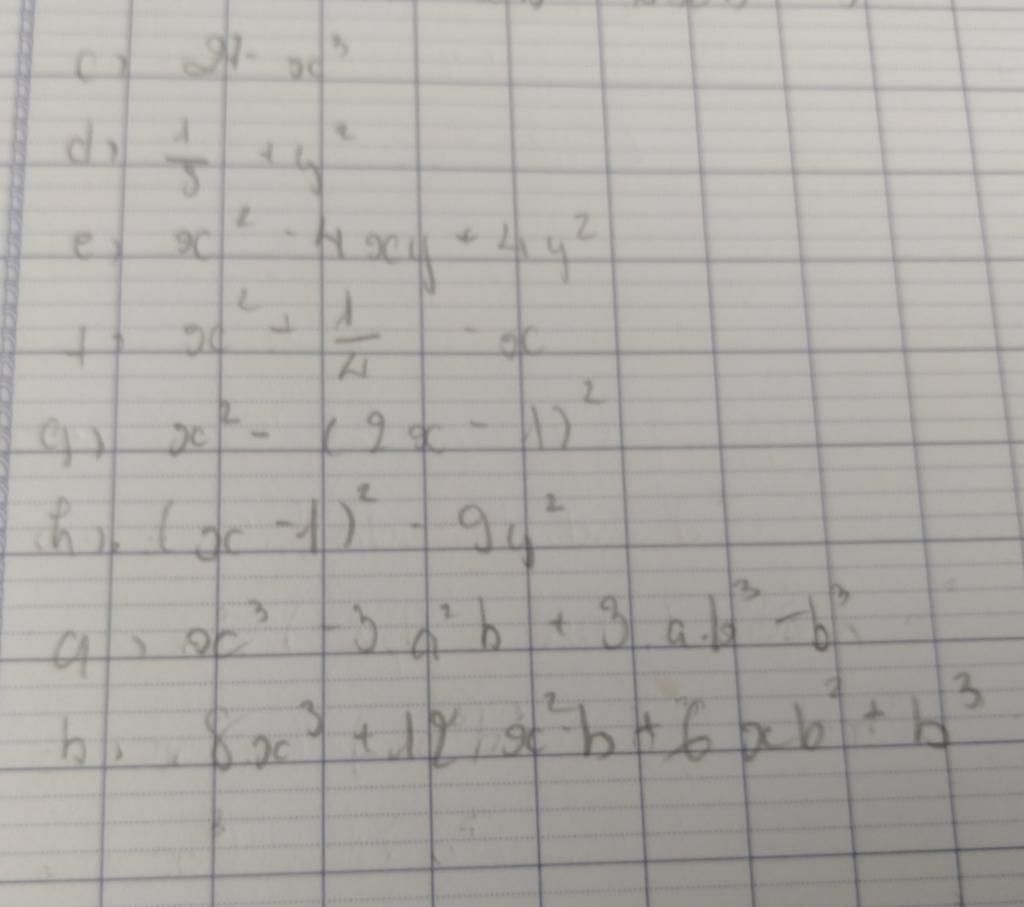 c) 27 - x³
d) 1/5 + y²
e) x² - 4xy + 4y²
f) x² + 1/4 - x
g) x² - (2x - 1)²
h), (x - 1)² - 9y²
a) x³ - 3.a²b + 3 a.b³ - b³.
b, 8x³ + 12.x²b + 6xb² + b³